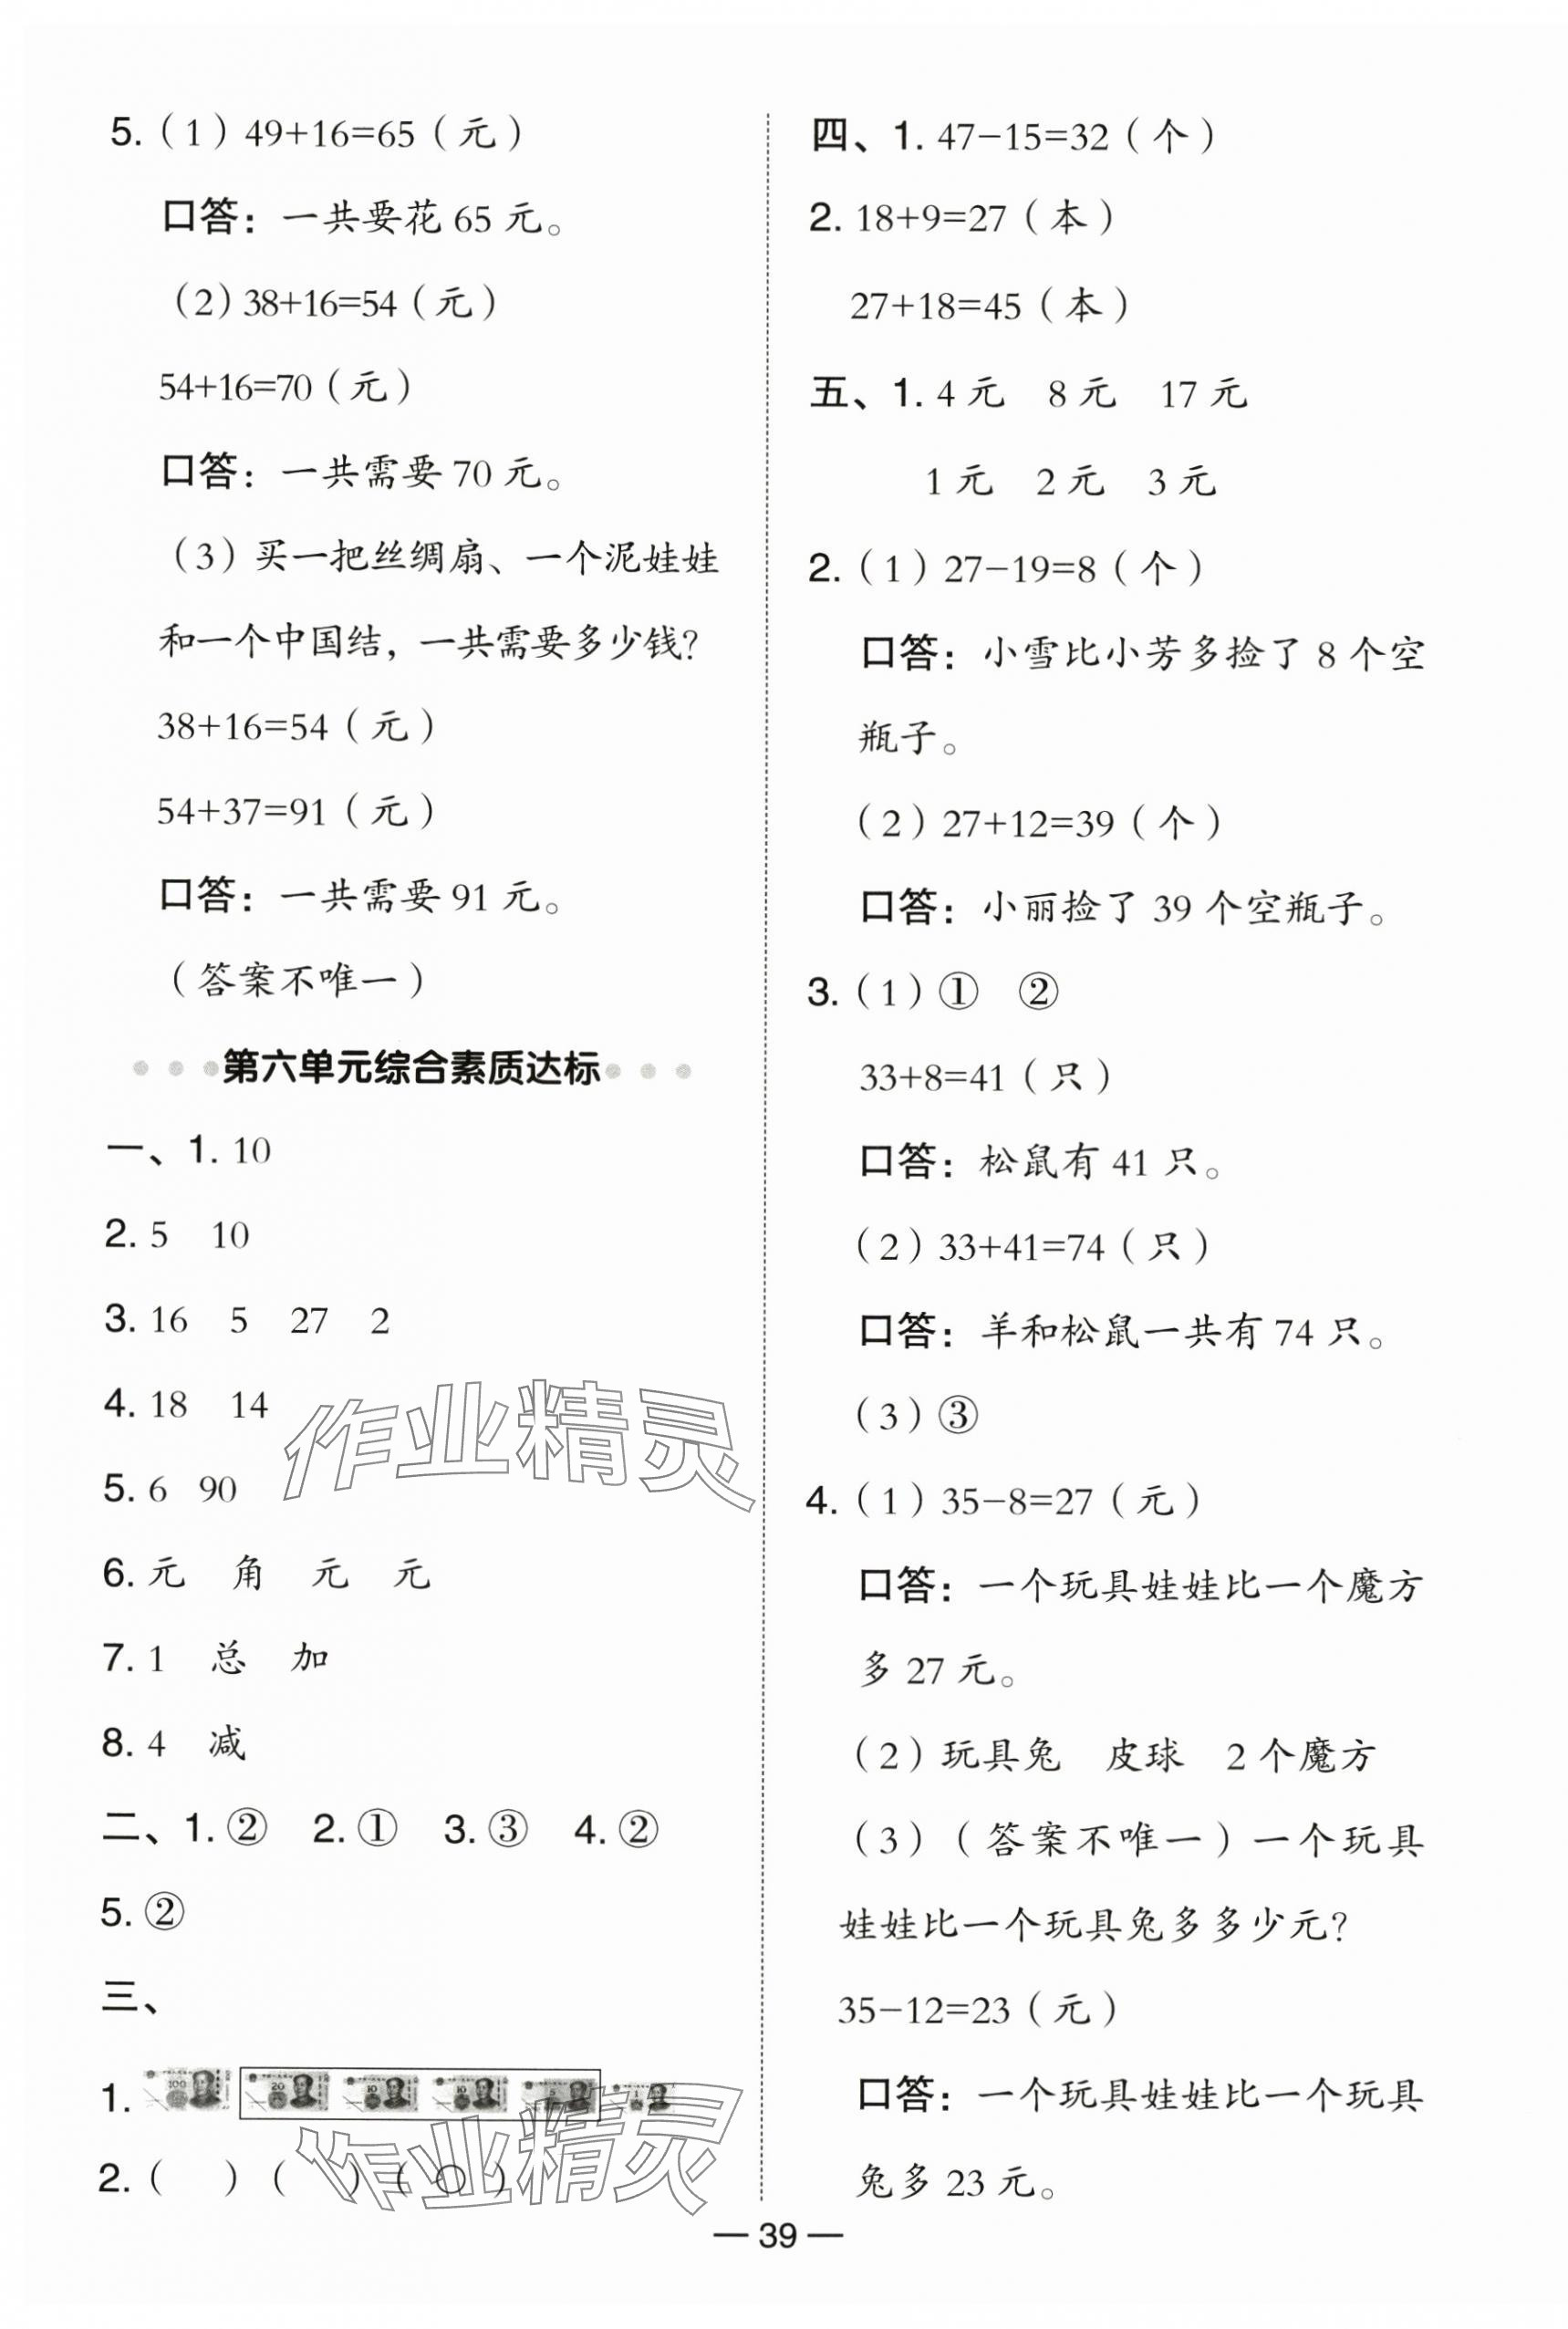 5.（1）49+16=65（元）
口答：一共要花 65 元。
（2）38+16=54（元）
54+16=70（元）
口答：一共需要 70 元。
（3）买一把丝绸扇、一个泥娃娃
和一个中国结，一共需要多少钱？
38+16=54（元）
54+37=91（元）
口答：一共需要 91 元。
（答案不唯一）
第六单元综合素质达标
一、1. 10
2. 5 10
3. 16 5 27 2
4. 18 14
5. 6 90
6. 元 角 元 元
7. 1 总 加
8. 4 减
二、1. ② 2. ① 3. ③ 4. ②
5. ②
三、
1. 100 20 10 10 5 1
2.（ ）（ ）（○）
四、1. 47−15=32（个）
2. 18+9=27（本）
27+18=45（本）
五、1. 4 元 8 元 17 元
1 元 2 元 3 元
2.（1）27−19=8（个）
口答：小雪比小芳多捡了 8 个空
瓶子。
（2）27+12=39（个）
口答：小丽捡了 39 个空瓶子。
3.（1）① ②
33+8=41（只）
口答：松鼠有 41 只。
（2）33+41=74（只）
口答：羊和松鼠一共有 74 只。
（3）③
4.（1）35−8=27（元）
口答：一个玩具娃娃比一个魔方
多 27 元。
（2）玩具兔 皮球 2 个魔方
（3）（答案不唯一）一个玩具
娃娃比一个玩具兔多多少元？
35−12=23（元）
口答：一个玩具娃娃比一个玩具
兔多 23 元。
— 39 —
作业精灵
作业精灵